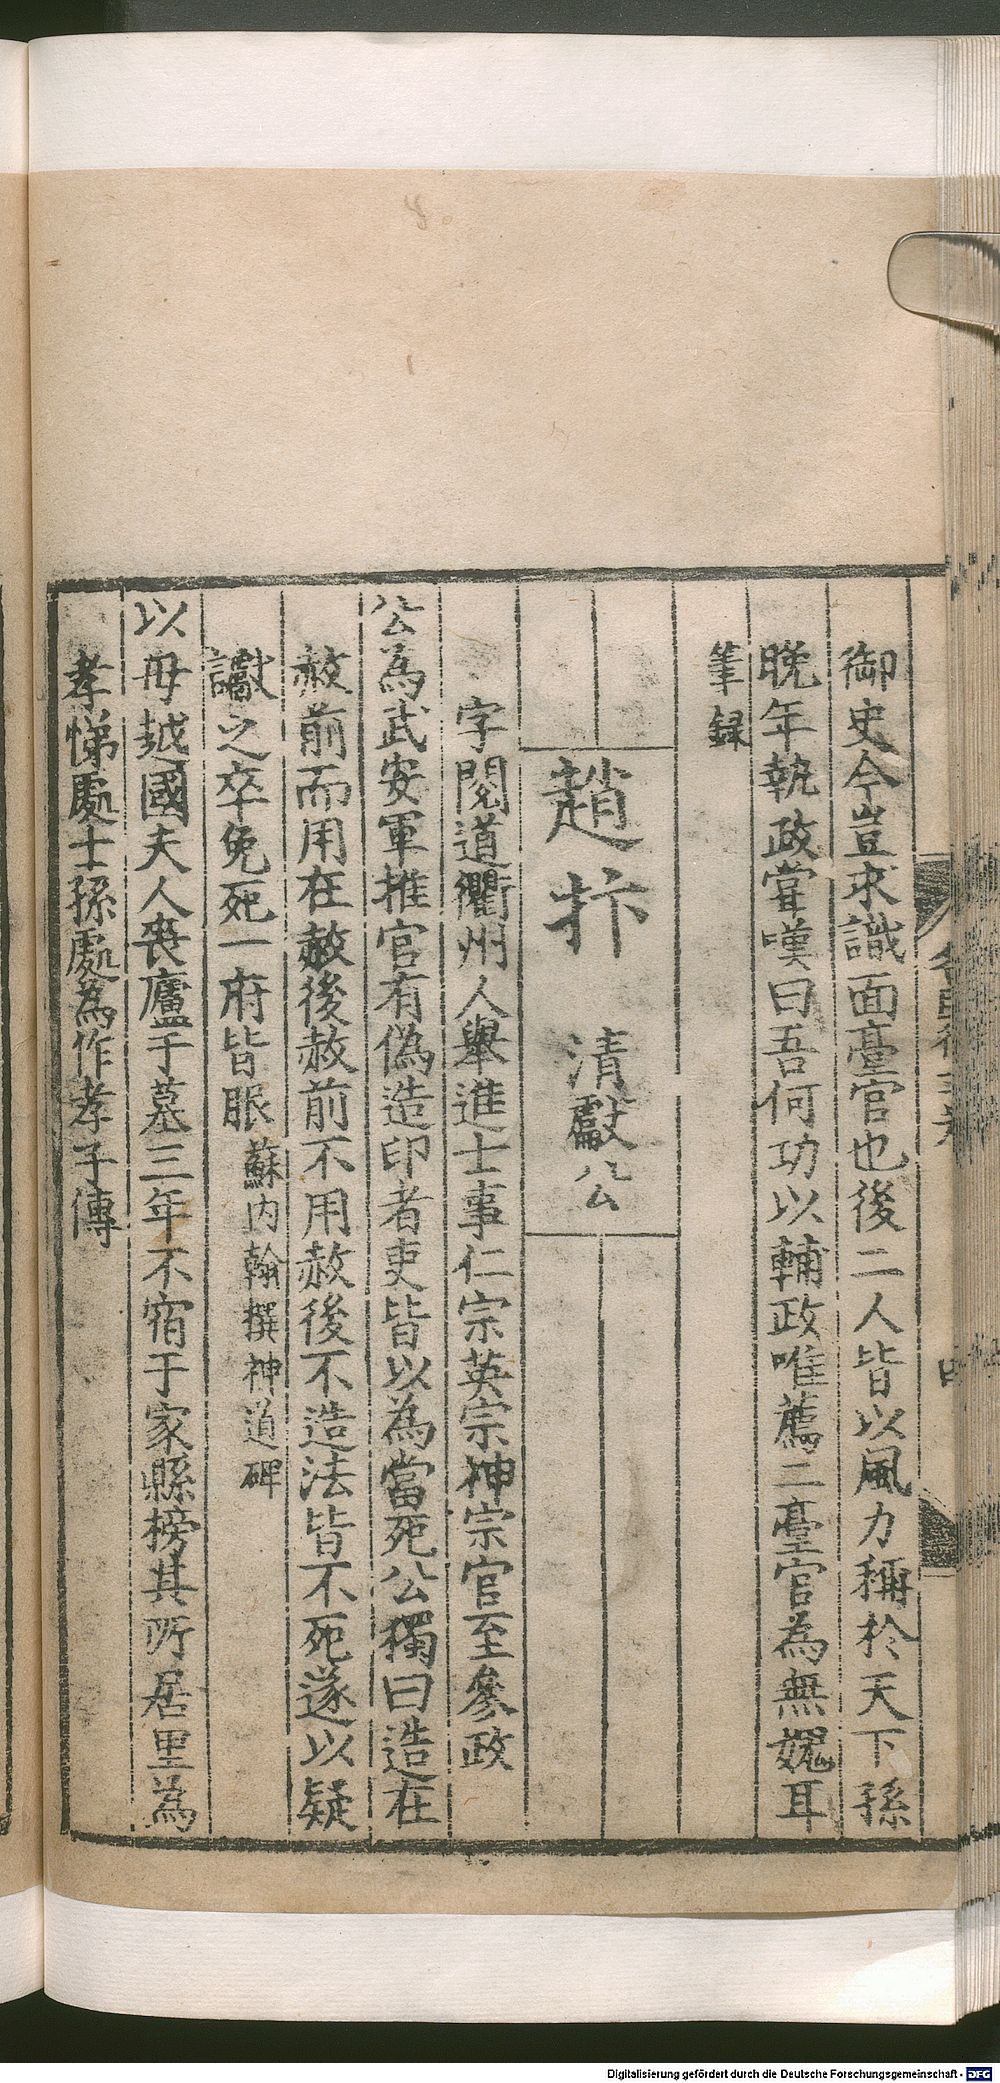 御史今豈求識面臺官也後二人皆以風力稱於天下孫
晚年執政嘗嘆曰吾何功以輔政唯薦二臺官為無媿耳
筆録
趙抃 清獻公
字閱道衢州人舉進士事仁宗英宗神宗官至參政
公為武安軍推官有偽造印者吏皆以為當死公獨曰造在
赦前而用在赦後赦前不用赦後不造法皆不死遂以疑
讞之卒免死一府皆眼 蘇内翰撰神道碑
以毋越國夫人喪廬于墓三年不宿于家縣榜其所居里為
孝悌處士孫處為作孝子傳
Digitalisierung gefördert durch die Deutsche Forschungsgemeinschaft - DFG